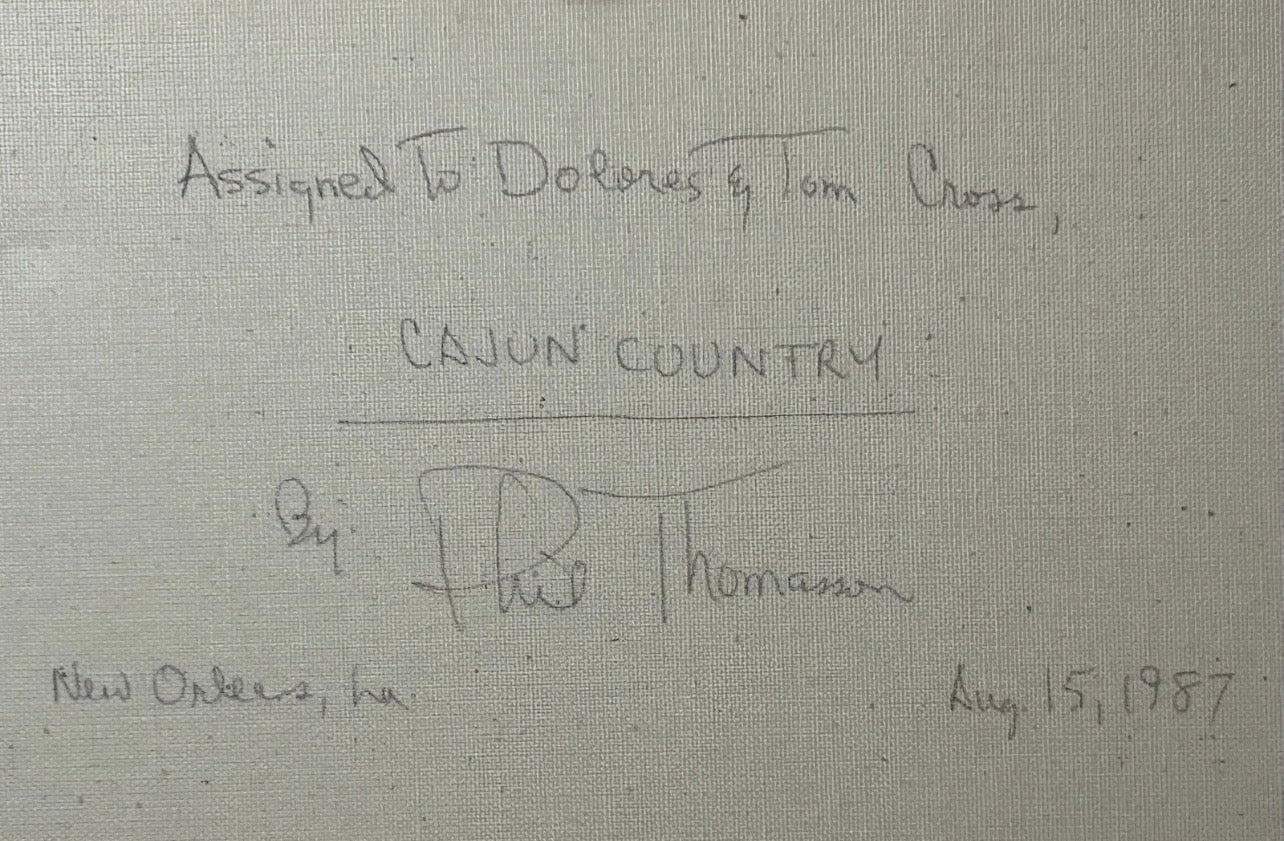 Assigned To Dolores & Tom Cross,
CAJUN COUNTRY
By: Phil Thomasson
New Orleans, La.
Aug. 15, 1987